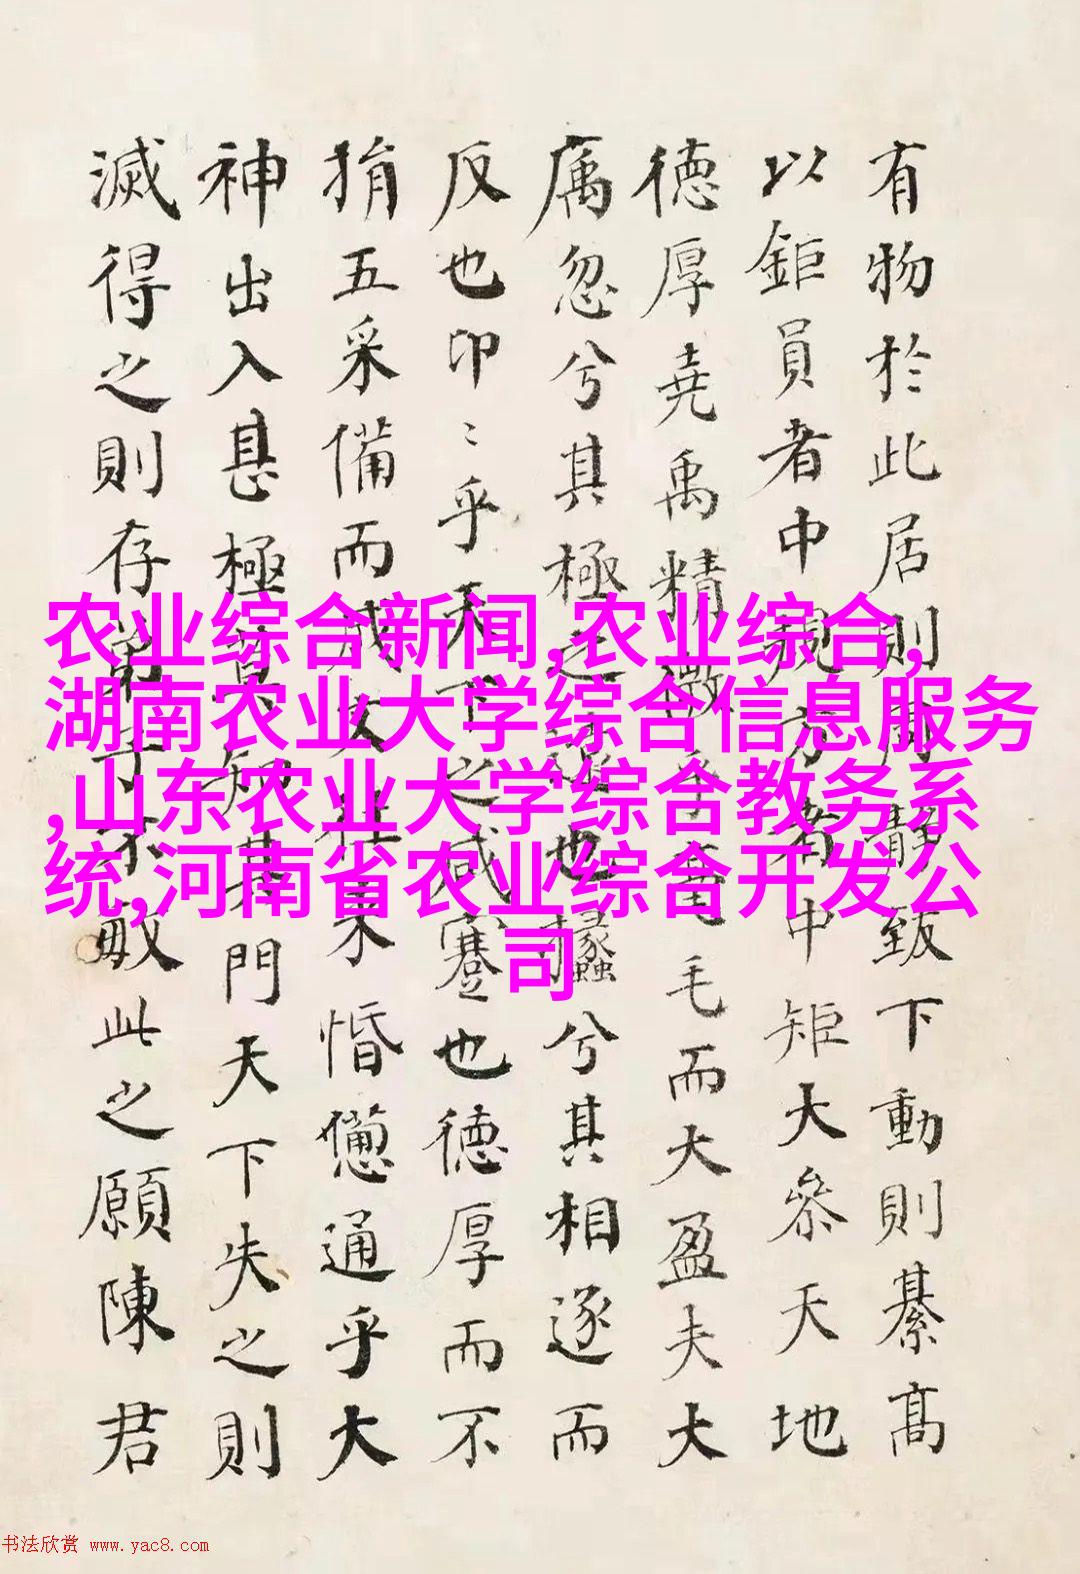 有物於此居則周靜致下動則綦高
以鉅員者中規方者中矩大參天地
德厚堯禹精微乎毫毛而大盈夫大
忽兮其極之遠也攭兮其相逐而
反也卬〻乎天下之咸蹇也德厚而不
捐五采備而成文往來惛憊通乎大
神出入甚極莫知其門天下失之則
滅得之則存弟子不敏此之願陳君
农业综合新闻,农业综合,
湖南农业大学综合信息服务
,山东农业大学综合教务系
统,河南省农业综合开发公
司
书法欣赏 www.yac8.com